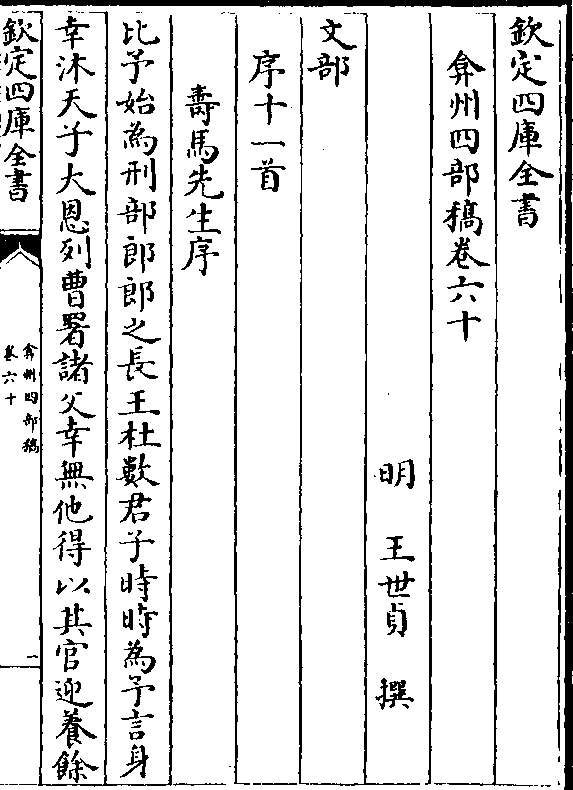 欽定四庫全書
弇州四部稿卷六十
明 王世貞 撰
文部
序十一首
壽馬先生序
比予始為刑部郎郎之長王杜數君子時時為予言身
幸沐天子大恩列曹署諸父幸無他得以其官迎養餘
欽定四庫全書
弇州四部稿
卷六十
一